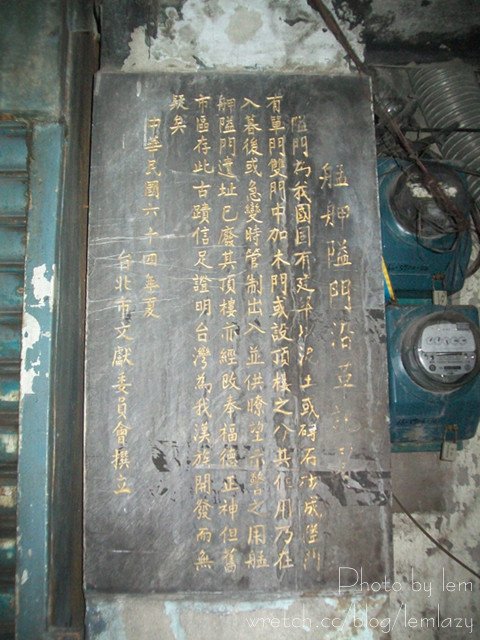 艋舺隘門沿革
隘門為我國固有建築以沙土或磚石法成堡門
有單門雙門中加木門或設頂樓之分其作用乃在
入暮後或急變時管制出入並供瞭望示警之用艋
舺隘門遺址已廢其頂樓亦經改奉福德正神但舊
市區存此古蹟信足證明台灣為我漢族開發而無
疑矣
中華民國六十四年夏
台北市文獻委員會撰立
Photo by lem
wretch.cc/blog/lemlazy